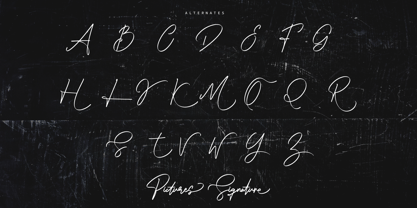 ALTERNATES
A B C D E F G
H I J K M O Q R
S T V W Y Z
Pictures Signature